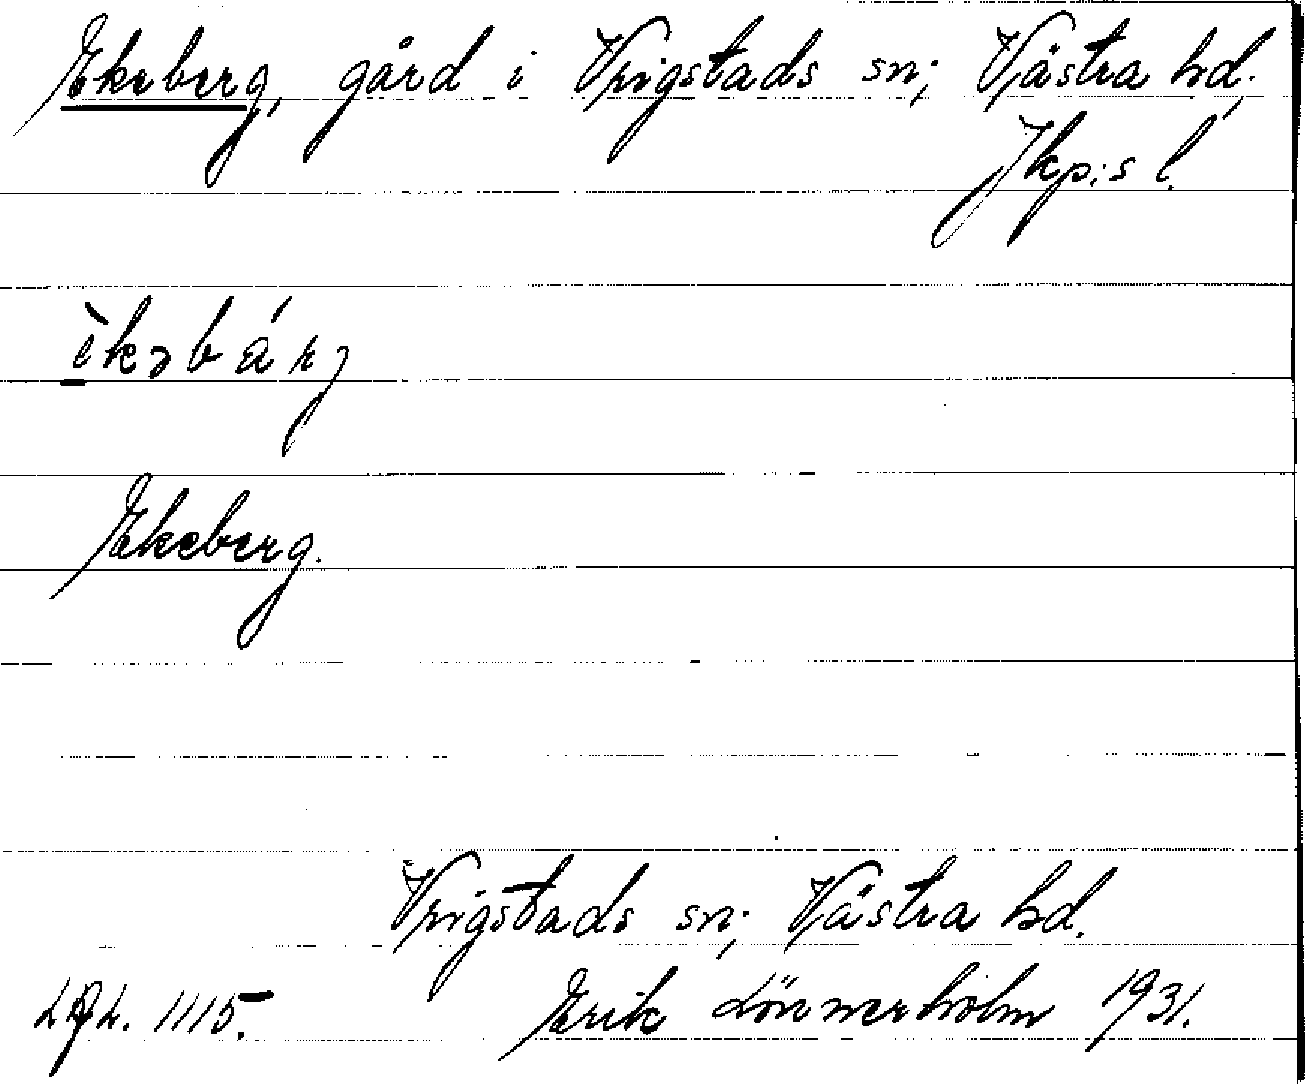 Ekeberg, gård i Vrigstads sn; Västra hd,
Jkp:s l.
èkəbárj
Ekeberg.
Vrigstads sn; Västra hd.
1115. Erik Lönnerholm 1931.